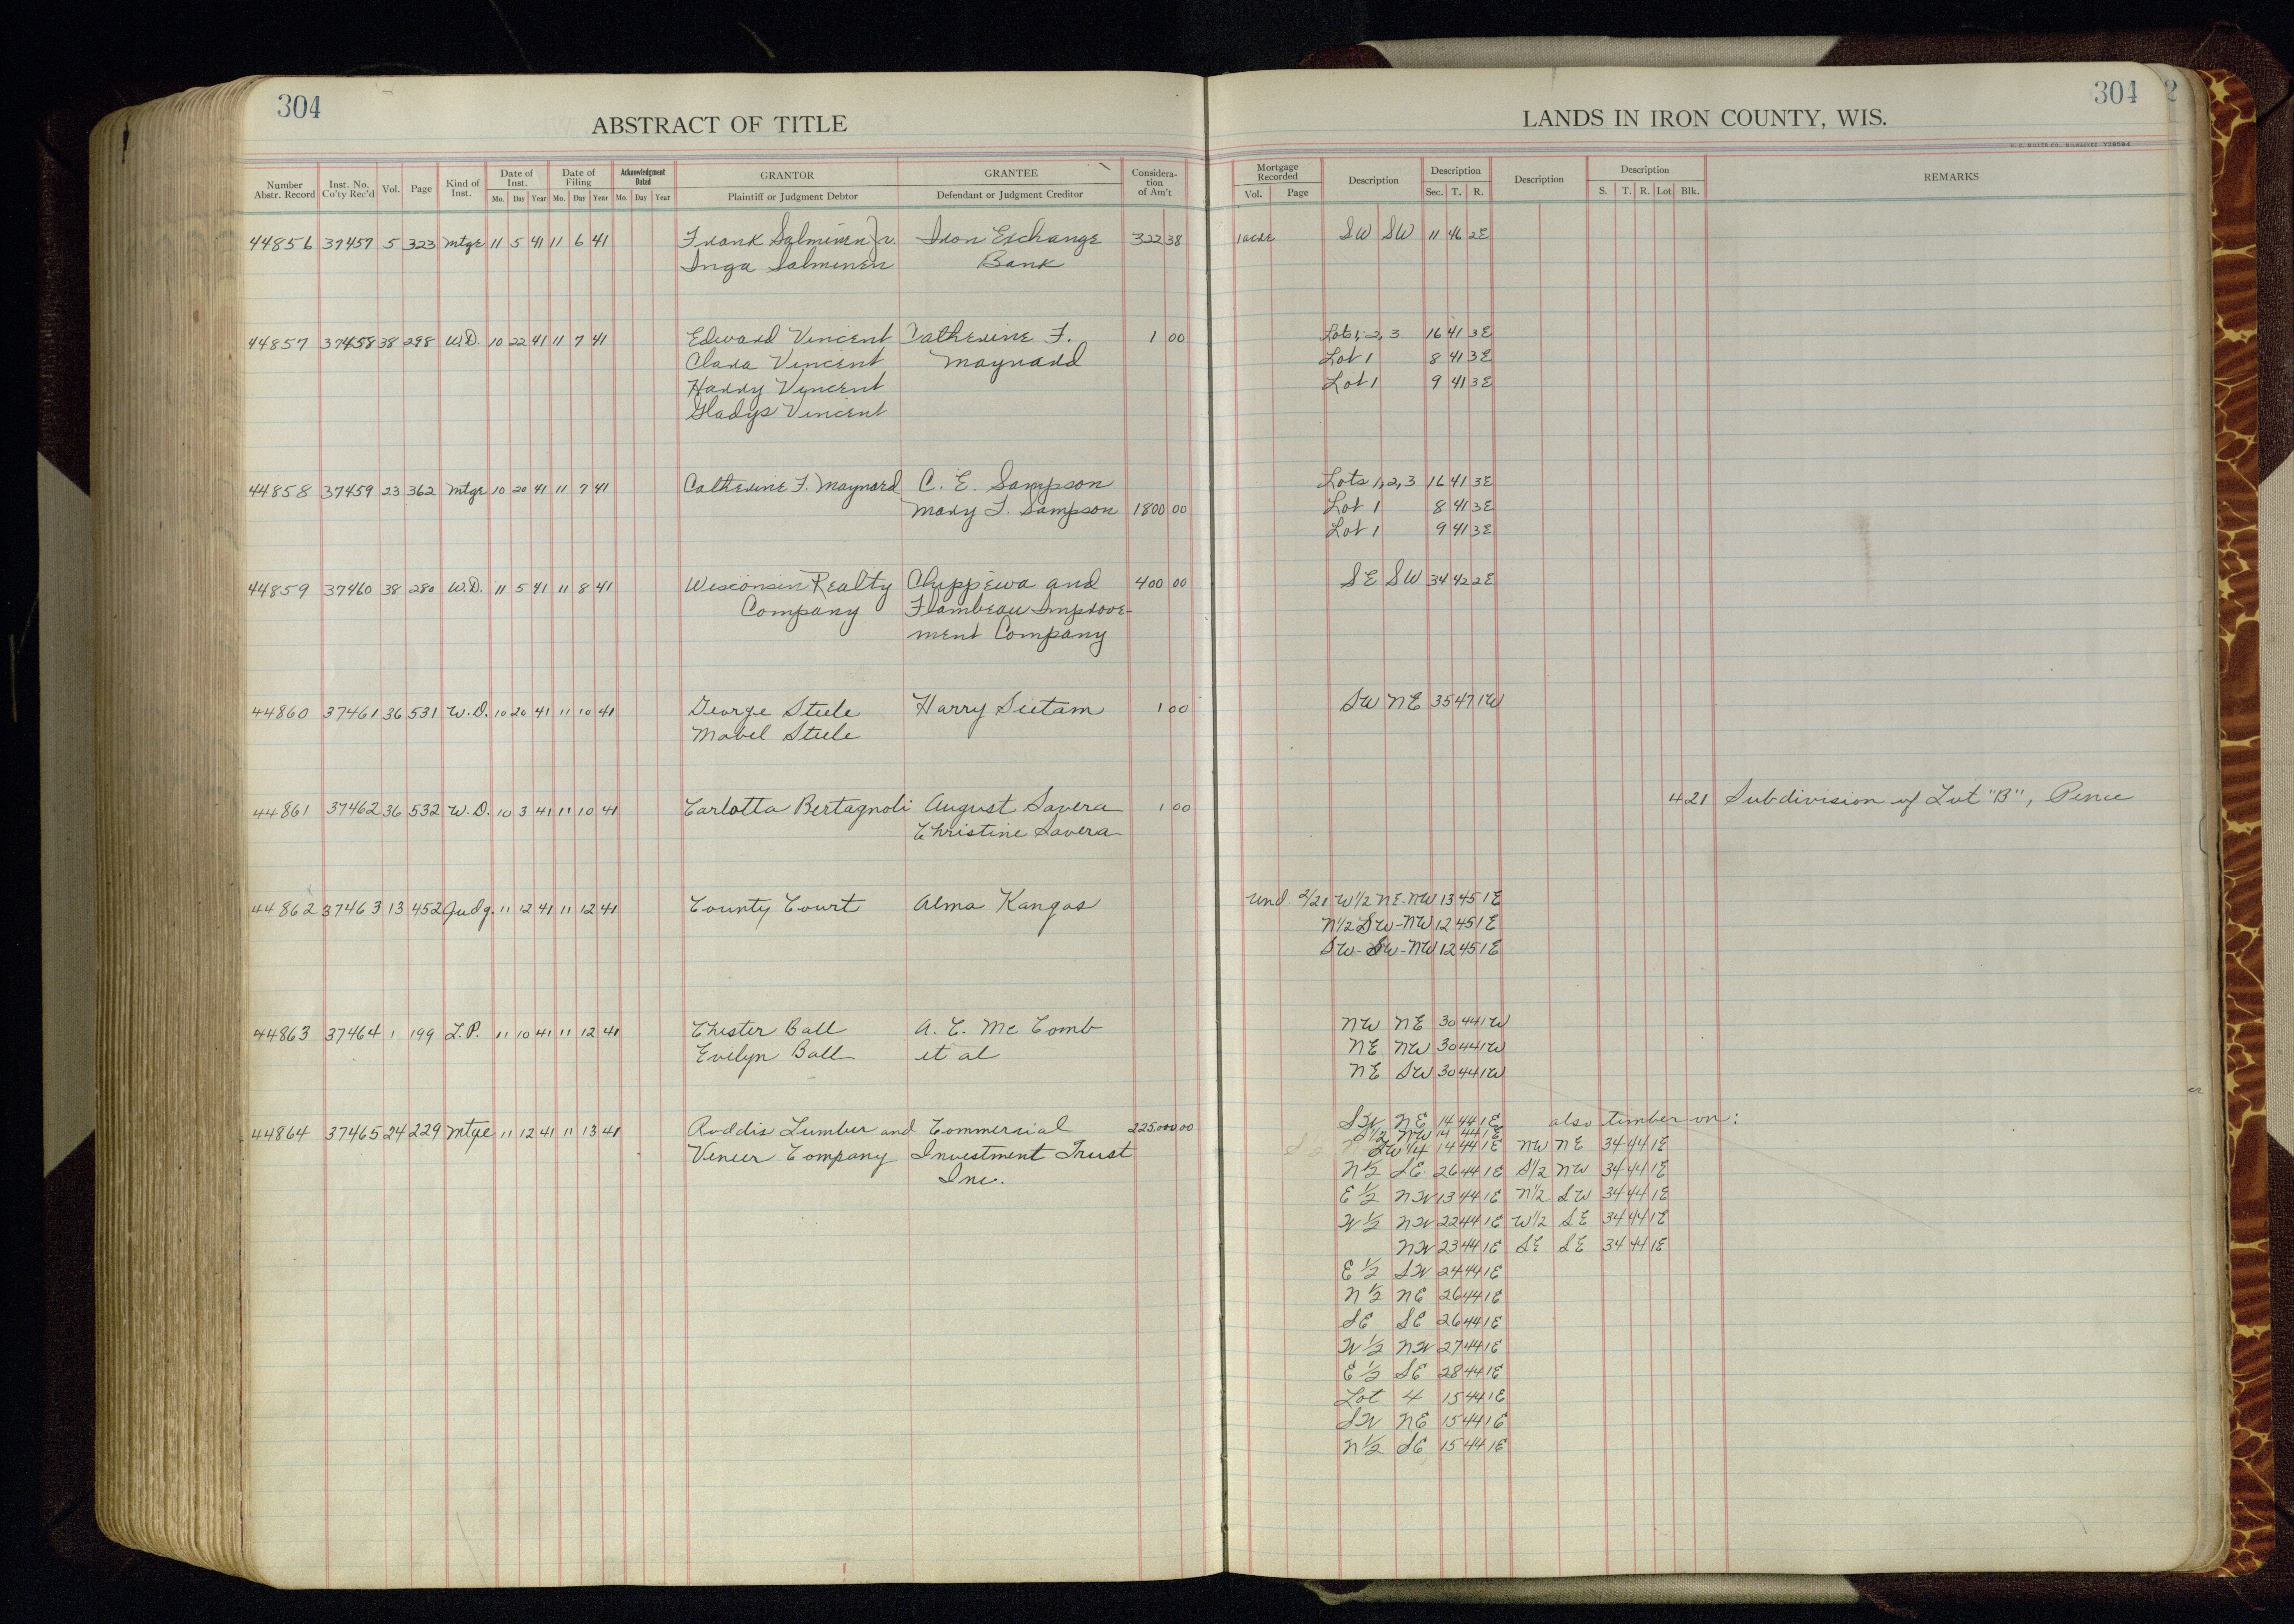 304
ABSTRACT OF TITLE
Number Abstr. Record Inst. No. Co'ty Rec'd Vol. Page Kind of Inst. Date of Inst. Mo. Day Year Date of Filing Mo. Day Year Acknowledgment Dated Mo. Day Year GRANTOR Plaintiff or Judgment Debtor GRANTEE Defendant or Judgment Creditor Consideration of Am't
44856 37457 5 323 Mtge 11 5 41 11 6 41 Frank Salminen Jr. Iron Exchange 322 38
Inga Salminen Bank
44857 37458 38 298 W.D. 10 22 41 11 7 41 Edward Vincent Catherine F. 1 00
Clara Vincent Maynard
Harry Vincent
Gladys Vincent
44858 37459 23 362 Mtge 10 20 41 11 7 41 Catherine F. Maynard C. E. Sampson
Mary F. Sampson 1800 00
44859 37460 38 280 W.D. 11 5 41 11 8 41 Wisconsin Realty Chippewa and 400 00
Company Flambeau Improve-
ment Company
44860 37461 36 531 W.D. 10 20 41 11 10 41 George Steele Harry Sietam 1 00
Mabel Steele
44861 37462 36 532 W.D. 10 3 41 11 10 41 Carlotta Bertagnoli August Savera 1 00
Christine Savera
44862 37463 13 452 Judg. 11 12 41 11 12 41 County Court Alma Kangas
44863 37464 1 199 L.P. 11 10 41 11 12 41 Chester Ball A. C. Mc Comb
Evelyn Ball et al
44864 37465 24 229 Mtge 11 12 41 11 13 41 Roddis Lumber and Commercial 225,000 00
Veneer Company Investment Trust
Inc.
304
2
LANDS IN IRON COUNTY, WIS.
H. C. MILLER CO., MILWAUKEE Y28594
Mortgage Recorded Vol. Page Description Description Sec. T. R. Description Description S. T. R. Lot Blk. REMARKS
1 acre SW SW 11 46 2E
Lots 1, 2, 3 16 41 3E
Lot 1 8 41 3E
Lot 1 9 41 3E
Lots 1, 2, 3 16 41 3E
Lot 1 8 41 3E
Lot 1 9 41 3E
SE SW 34 42 2E
SW NE 35 47 1W
421 Subdivision of Lot "B", Pence
Und. 2/21 W1/2 NE-NW 13 45 1E
N1/2 SW-NW 12 45 1E
SW-SW-NW 12 45 1E
NW NE 30 44 1W
NE NW 30 44 1W
NE SW 30 44 1W
SW NE 14 44 1E also timber on:
S1/2 NW 14 44 1E
SW1/4 14 44 1E NW NE 34 44 1E
N1/2 SE 26 44 1E S1/2 NW 34 44 1E
E1/2 NW 13 44 1E N1/2 SW 34 44 1E
W1/2 NW 22 44 1E W1/2 SE 34 44 1E
NW 23 44 1E SE SE 34 44 1E
E1/2 SW 24 44 1E
N1/2 NE 26 44 1E
SE SE 26 44 1E
W1/2 NW 27 44 1E
E1/2 SE 28 44 1E
Lot 4 15 44 1E
SW NE 15 44 1E
N1/2 SE 15 44 1E